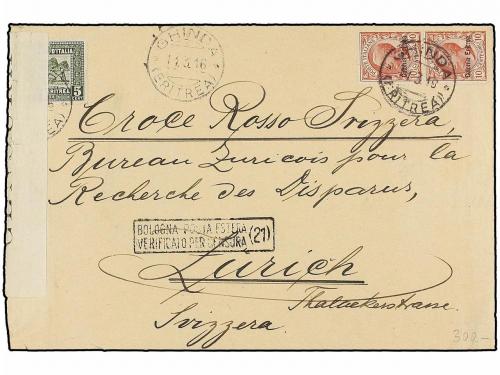 GHINDA
13.5.16
(ERITREA)
D'ITALIA
ERITREA
5
Colonia Eritrea
Colonia Eritrea
GHINDA
(ERITREA)
Croce Rosso Svizzera
Bureau Zuricois pour la
Recherche des Disparus,
BOLOGNA POSTA ESTERA
VERIFICATO PER CENSURA (21)
Zurich
Thalackerstrasse.
Svizzera.
300.-